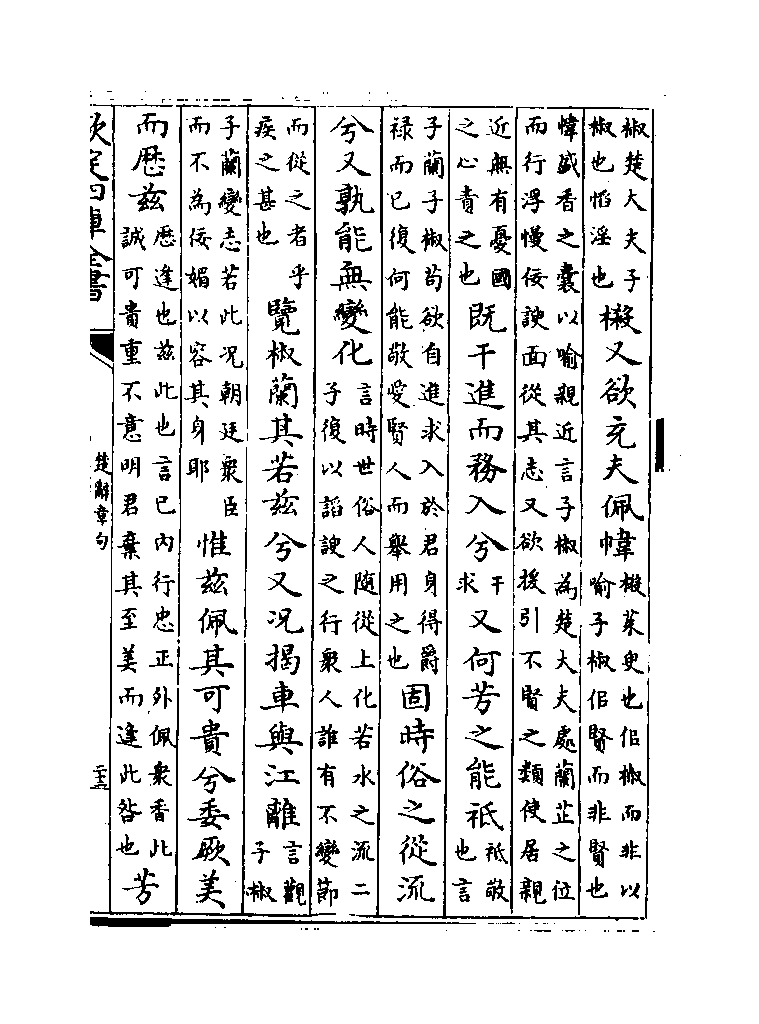 椒楚大夫子
椒也慆淫也
樧又欲充夫佩幃
樧茱萸也佀椒而非以
喻子椒佀賢而非賢也
幃盛香之囊以喻親近言子椒為楚大夫處蘭芷之位
而行浮慢佞諛面從其志又欲援引不賢之類使居親
近無有憂國
之心責之也
既干進而務入兮
干
求
又何芳之能祗
祗敬
也言
子蘭子椒苟欲自進求入於君身得爵
祿而已復何能敬愛賢人而舉用之也
固時俗之從流
兮又孰能無變化
言時世俗人隨從上化若水之流二
子復以諂諛之行衆人誰有不變節
而從之者乎
疾之甚也
覽椒蘭其若兹兮又况揭車與江離
言觀
子椒
子蘭變志若此况朝廷衆臣
而不為佞媚以容其身耶
惟兹佩其可貴兮委厥美
而歷兹
歷逢也兹此也言已內行忠正外佩衆香此
誠可貴重不意明君棄其至美而逢此咎也
芳
欽定四庫全書
楚辭章句
二十三